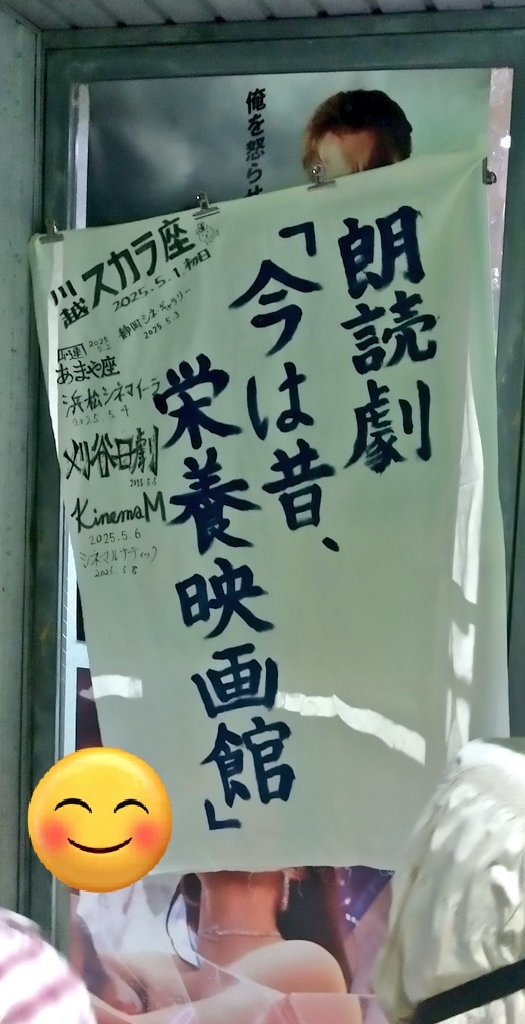 俺を怒らせ
朗読劇
「今は昔、
栄養映画館」
川越スカラ座
2025.5.1.初日
静岡シネギャラリー
2025.5.3
2025
5.2
あまや座
浜松シネマイーラ
2025.5.4
刈谷日劇
2025.5.5
KinemaM
2025.5.6
シネマルナティック
2025.5.8